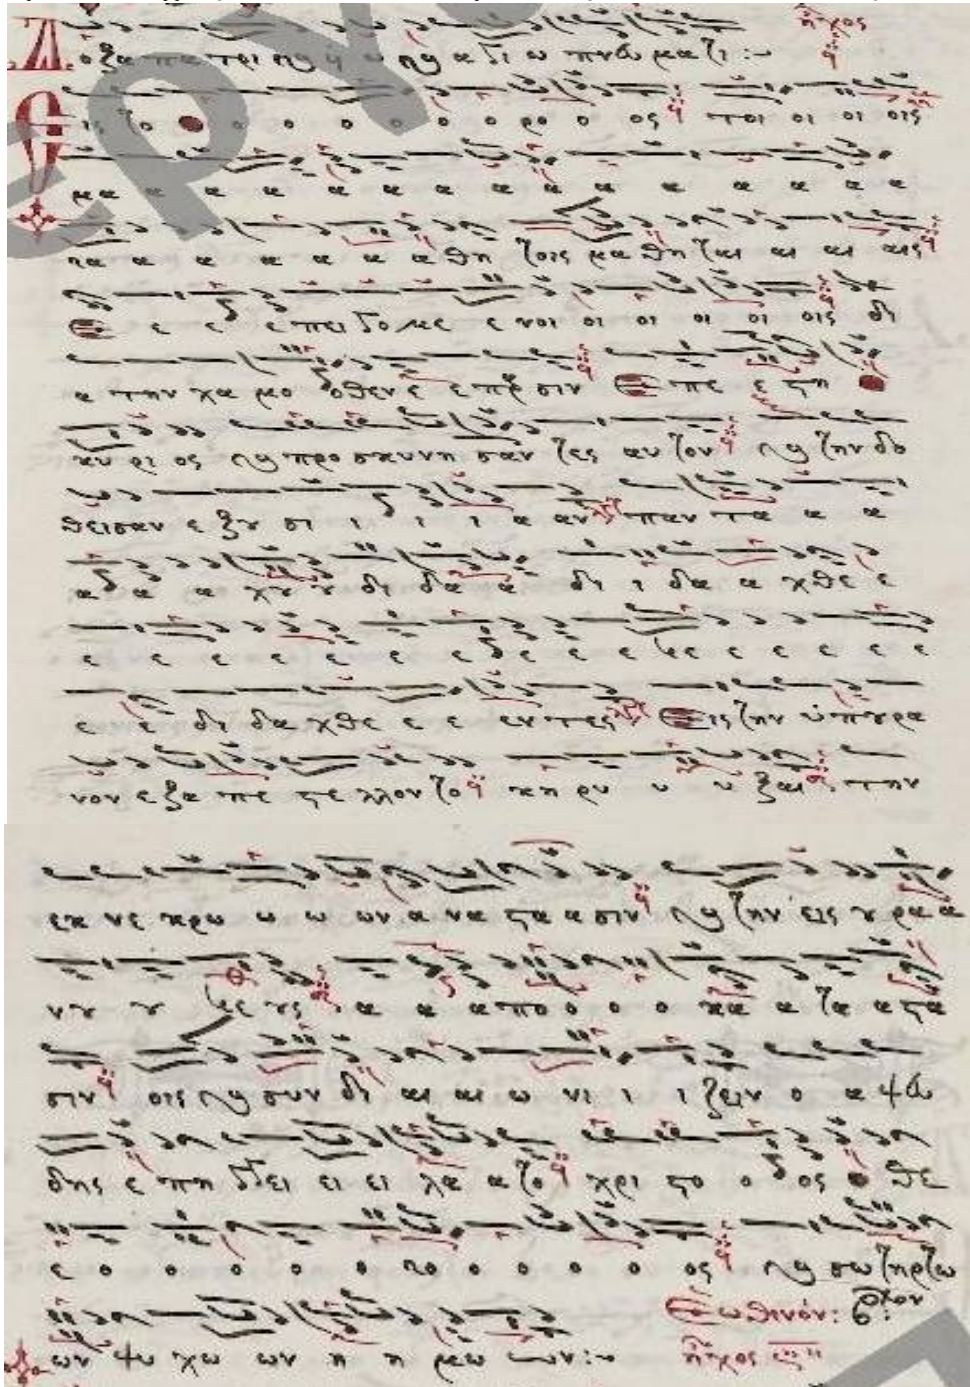 ἦχος
Δοξα πα τρι καὶ ὑ ω καὶ α γι ω πνευ μα τι :~
Εις το ο ο ο ο ο ο ο ρο ο ος τοι οι οι οις
μα α α α α α α α α α α α α α
πα α α α α α α θη τοις μα θη ται αι αι αις
ε ε ε ε πει γο με ε νοι οι οι οι οι οις δι
α την χα μο ο θεν ε ε παρ σιν ε πε ε στη ο
κυ ρι ος καὶ προ σκυνη σαν τες αυ τον καὶ την δο
θεισαν ε ξου σι ι ι ι α αν παν τα α α
α γα α χου ου δι δα α δι ι δα α χθε ε
ε ε ε ε ε ε ε γε ε ε ε ε ε ε ε ε
ε ε δι δα χθε ε ε εν τες εις την ὑπ ουρα
νον ε ξα πε στε λλον το κη ρυ υ υ ξαι την
εκ νε κρω ω ω ων α να στα α σιν καὶ την εις ου ρα α
νου ου ους α α απο ο ο ο κα α τα α στα
σιν οις καὶ συν δι αι αι ω νι ι ι ι ζειν ο α ψευ
δης ε πη γγει ει ει λα α το χρι στο ο ο ος ο θε
ε ο ο ο ο ο ο ο ο ο ο ο ος καὶ σω τηρ τω
ων ψυ χω ων η η μω ων :~
Εωθινόν: βον:
ἦχος